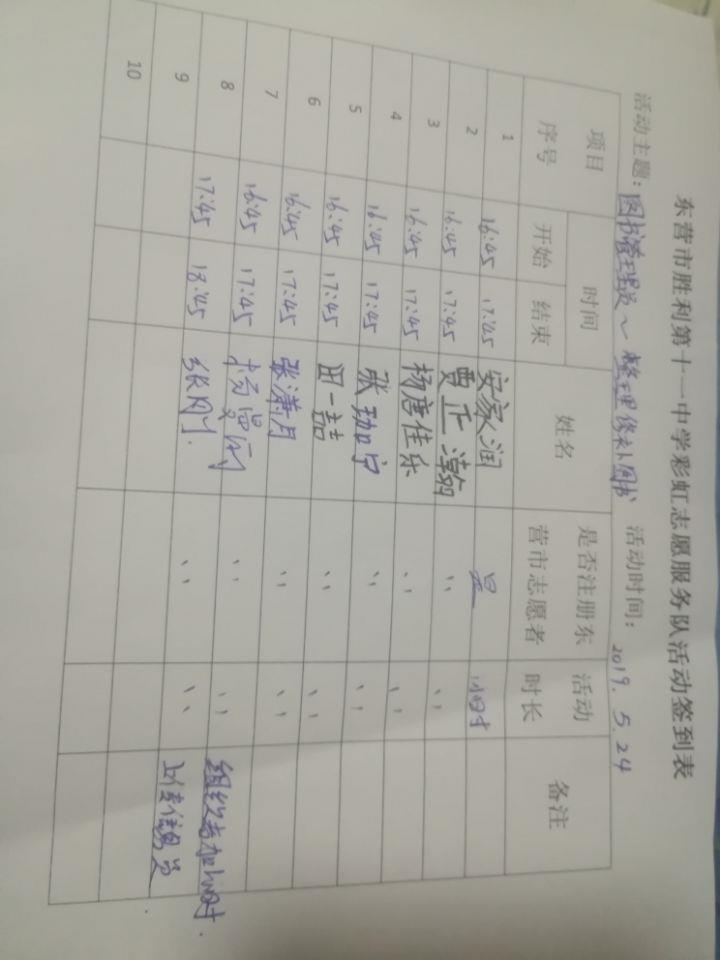 东营市胜利第十一中学彩虹志愿服务队活动签到表
活动主题：图书管理员～整理修补图书 活动时间：2019.5.24
项目 时间 姓名 是否注册东营市志愿者 活动时长 备注
序号 开始 结束
1 16:45 17:45 安家润 是 1小时
2 16:45 17:45 贾正瀚 〃 〃
3 16:45 17:45 杨唐佳乐 〃 〃
4 16:45 17:45 张劢宁 〃 〃
5 16:45 17:45 田一喆 〃 〃
6 16:45 17:45 张潇月 〃 〃
7 16:45 17:45 〃 〃 组织者加1小时
8 17:45 18:45 〃 〃 上传信息员
9
10